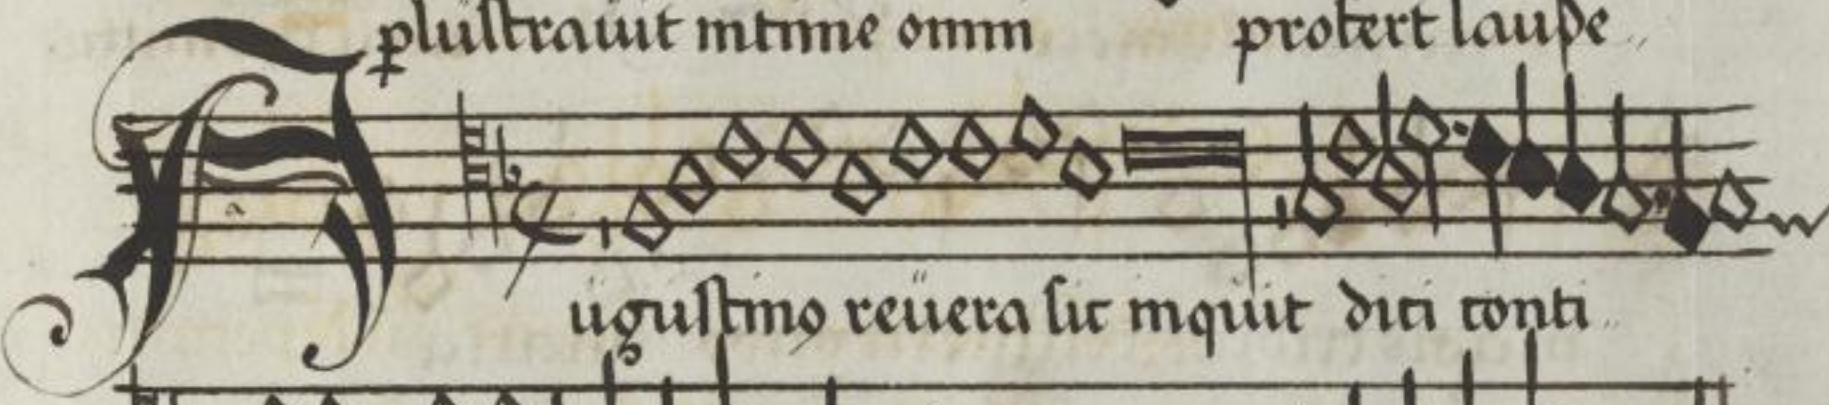 pluſtrauit intime omni probert laude
Auguſtino reuera ſic inquit dici conti